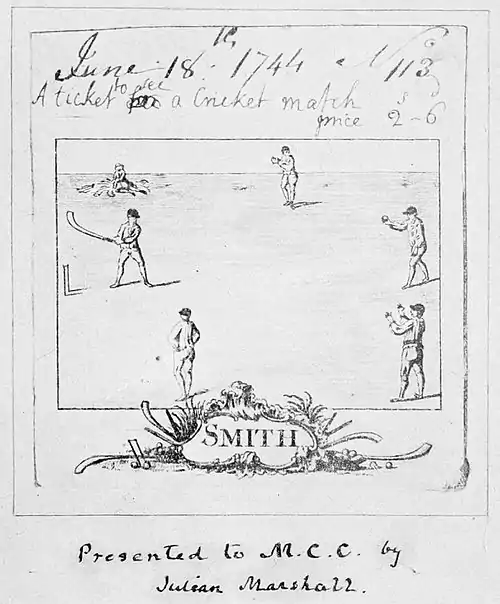 June 18th, 1744 No 113
A ticket to see a Cricket match
price 2s-6d
SMITH
Presented to M.C.C. by
Julian Marshall.